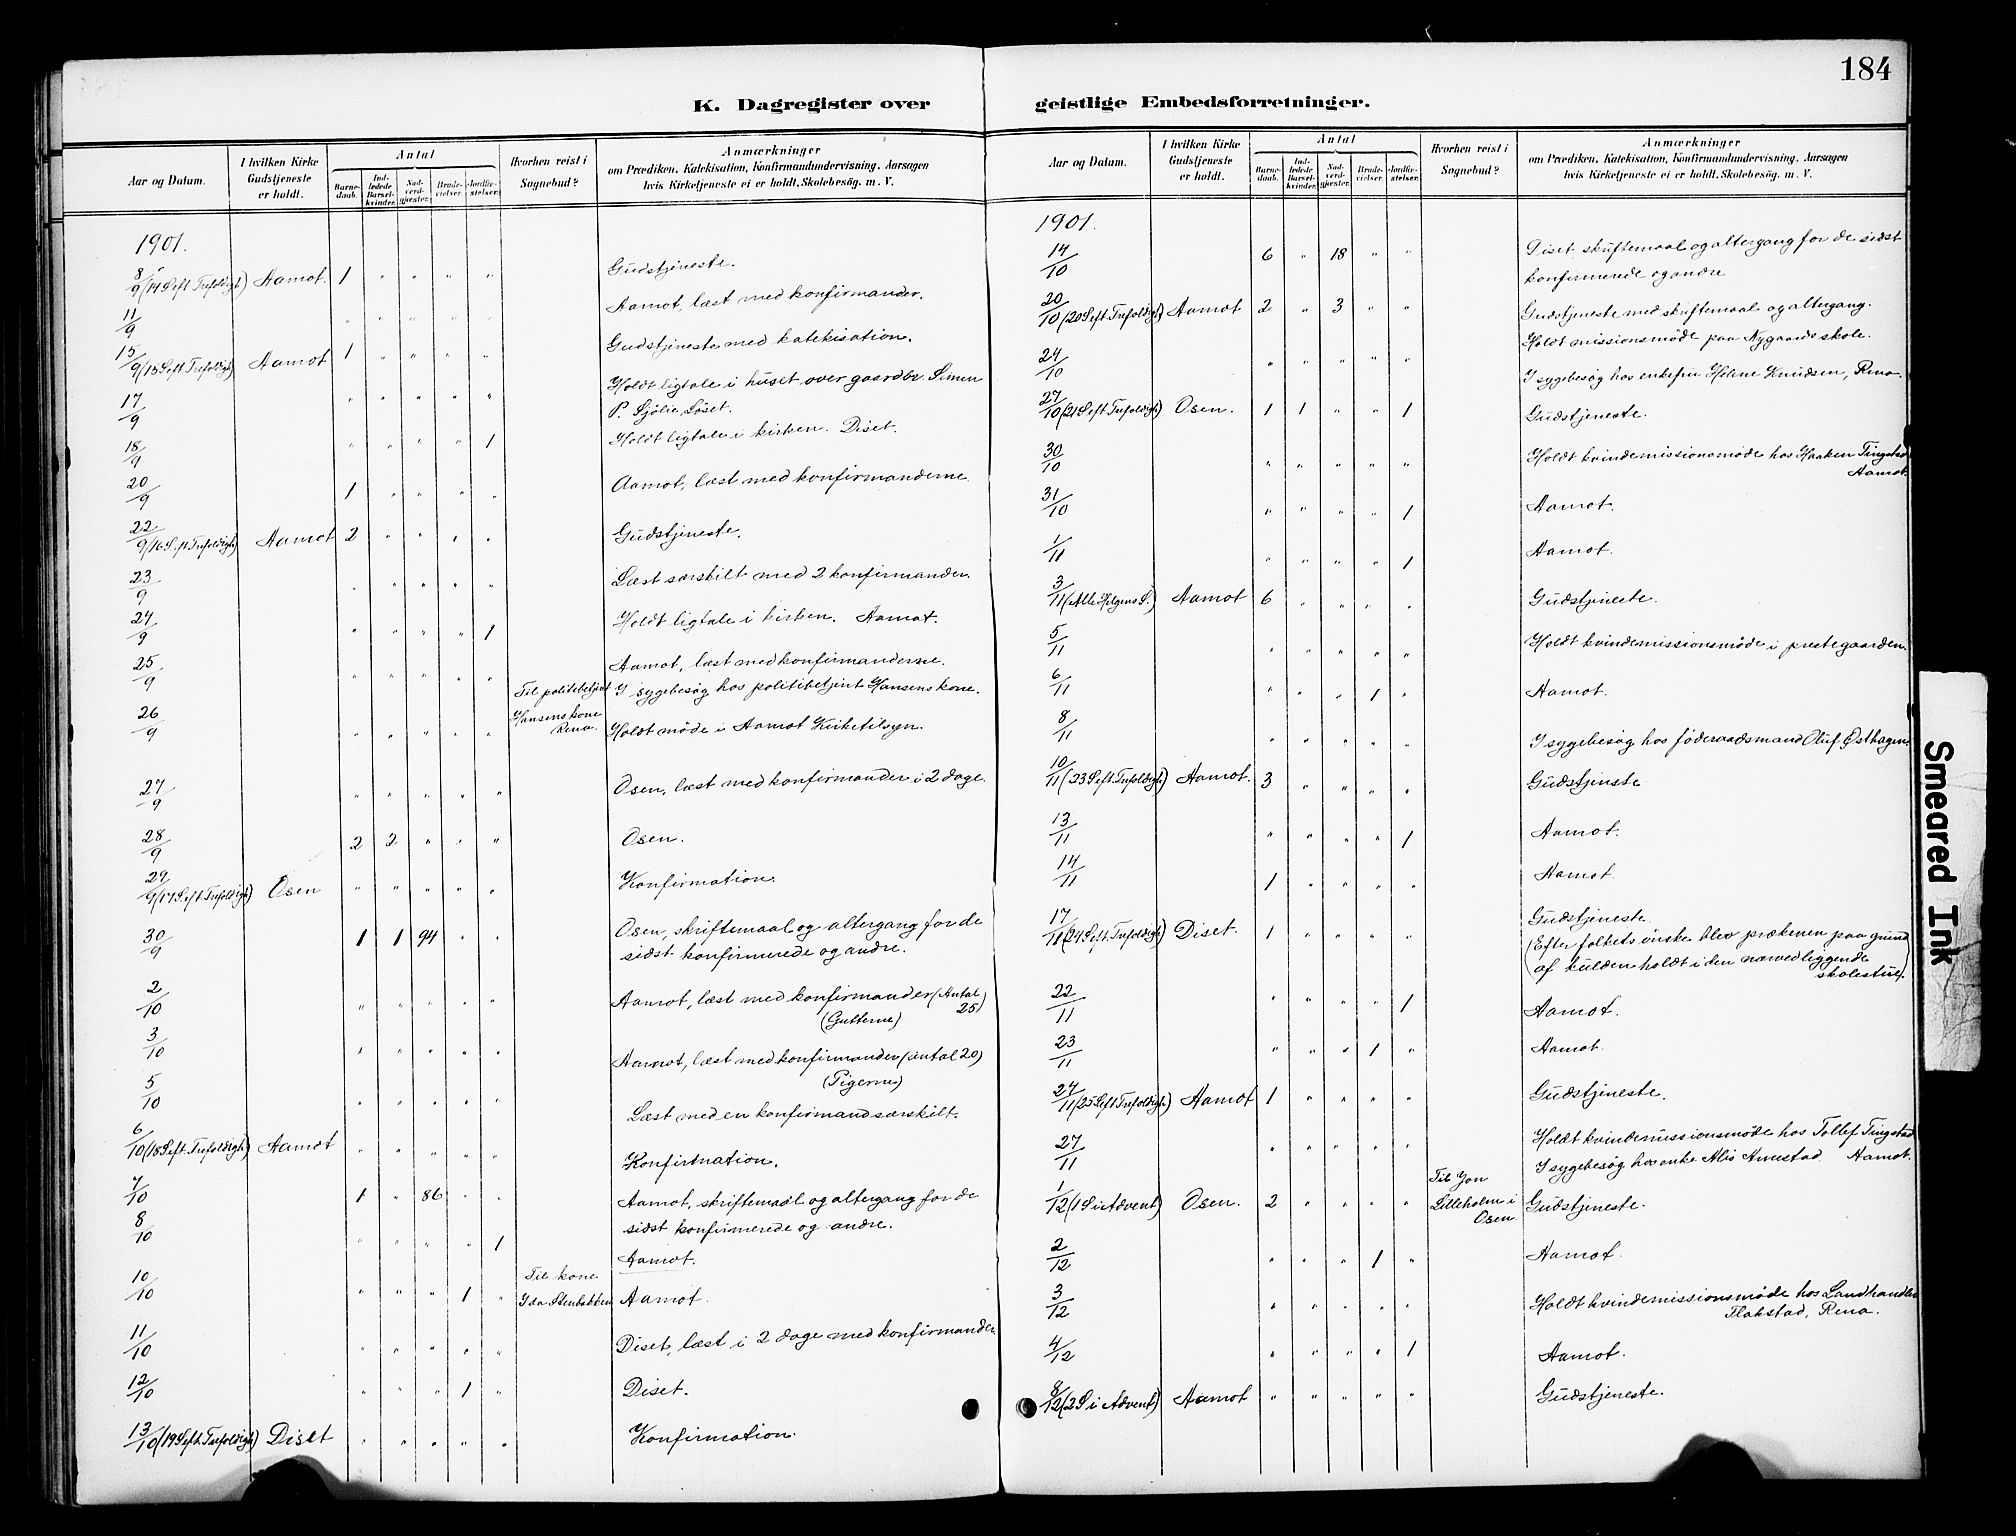 184
K. Dagregister over geistlige Embedsforretninger.
Aar og Datum. | I hvilken Kirke Gudstjeneste er holdt. | Antal | Barnedaab. | Indledede Barselkvinder. | Nadverdgjæster. | Brudevielser. | Jordfæstelser. | Hvorhen reist i Sognebud? | Anmærkninger om Prædiken, Katekisation, Konfirmandundervisning, Aarsagen hvis Kirketjeneste ei er holdt, Skolebesøg. m. V.
1901.
8/9 (14 S eft. Trefoldigh) Aamot. 1 " " " " Gudstjeneste.
11/9 " " " " " Aamot, læst med konfirmander.
15/9 (15 S eft. Trefoldigh) Aamot 1 " " " " Gudstjeneste med katekisation.
17/9 " " " " " Holdt ligtale i huset over gaardbr. Simen
P. Sjølie, Løset.
18/9 " " " " 1 Holdt ligtale i kirken. Diset.
20/9 1 " " " " Aamot, læst med konfirmanderne
22/9 (16 S. eft Trefoldigh) Aamot 2 " " " " Gudstjeneste.
23/9 " " " " " Læst særskilt med 2 konfirmander.
24/9 " " " " 1 Holdt ligtale i kirken. Aamot.
25/9 " " " " " Aamot, læst med konfirmanderne.
Til politibetjent I sygebesøg hos politibetjent Hansens kone.
26/9 " " " " " Hansens kone Rena. Holdt møde i Aamot Kirketilsyn.
27/9 " " " " " Osen, læst med konfirmander i 2 dage.
28/9 2 2 " " " Osen.
29/9 (17 S eft. Trefoldigh) Osen " " " " " Konfirmation.
30/9 1 1 94 " " Osen, skriftemaal og altergang for de
sidst konfirmerede og andre.
2/10 " " " " " Aamot, læst med konfirmander (Antal
25)
(Gutterne)
3/10 " " " " " Aamot, læst med konfirmander (antal 20)
(Pigerne)
5/10 " " " " " Læst med en konfirmand særskilt.
6/10 (18 S eft. Trefoldigh) Aamot " " " " " Konfirmation.
7/10 1 " 86 " " Aamot, skriftemaal og altergang for de
sidst konfirmerede og andre.
8/10 " " " " 1 Aamot.
10/10 " " " 1 " Til kone Ida Stenbakken Aamot.
11/10 " " " " " Diset, læst i 2 dage med konfirmander
12/10 " " " 1 " Diset.
13/10 (19 S eft. Trefoldigh) Diset " " " " " Konfirmation.
Aar og Datum. | I hvilken Kirke Gudstjeneste er holdt. | Antal | Barnedaab. | Indledede Barselkvinder. | Nadverdgjæster. | Brudevielser. | Jordfæstelser. | Hvorhen reist i Sognebud? | Anmærkninger om Prædiken, Katekisation, Konfirmandundervisning, Aarsagen hvis Kirketjeneste ei er holdt, Skolebesøg. m. V.
1901.
14/10 6 " 18 " " Diset, skriftemaal og altergang for de sidst
konfirmerede og andre
20/10 (20 S eft. Trefoldigh) Aamot 2 " 3 " " Gudstjeneste med skriftemaal og altergang.
Holdt missionsmøde paa Nygaards skole.
24/10 " " " " " I sygebesøg hos enkefru Helene Knudsen, Rena.
27/10 (21 S eft Trefoldigh) Osen. 1 1 " " 1 Gudstjeneste.
30/10 " " " " " Holdt kvindemissionsmøde hos Haaken Tingstad
Aamot.
31/10 " " " " 1 Aamot.
1/11 " " " " 1 Aamot.
3/11 (Alle Helgens S.) Aamot 6 " " " " Gudstjeneste.
5/11 " " " " " Holdt kvindemissionsmøde i prestegaarden.
6/11 " " " 1 " Aamot.
8/11 " " " " " I sygebesøg hos føderaadsmand Oluf Østhagen.
10/11 (23 S eft. Trefoldigh) Aamot. 3 " " " " Gudstjenste
13/11 " " " " 1 Aamot.
14/11 1 " " " " Aamot.
17/11 (24 S eft. Trefoldigh) Diset. 1 " " " " Gudstjeneste
(Efter folkets ønske blev prækenen paa grund
af kulden holdt i den nærvedliggende
skolestue).
22/11 " " " " 1 Aamot.
23/11 " " " 1 " Aamot.
24/11 (25 S eft Trefoldigh) Aamot 1 " " " " Gudstjeneste.
27/11 " " " " " Holdt kvindemissionsmøde hos Tollef Tingstad
I sygebesøg hos enke Alis Arnestad Aamot.
1/12 (1 S i Advent) Osen. 2 " " " " Til Jon Lilleholm i Osen Gudstjeneste.
2/12 " " " 1 " Aamot.
3/12 " " " " " Holdt kvindemissionsmøde hos Landhandler
Flakstad, Rena.
4/12 " " " " 1 Aamot.
8/12 (2 S i Advent) Aamot " " " " " Gudstjeneste.
Smeared Ink